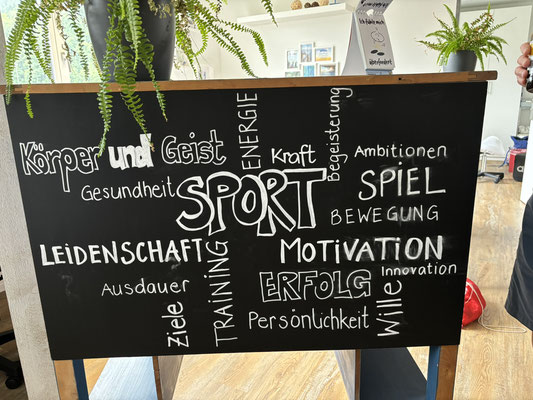 Ich fühle mich
überfordert
ENERGIE
Begeisterung
Körper und Geist
Kraft
Ambitionen
Gesundheit
SPORT
SPIEL
BEWEGUNG
LEIDENSCHAFT
MOTIVATION
Innovation
Ausdauer
TRAINING
ERFOLG
Wille
Ziele
Persönlichkeit